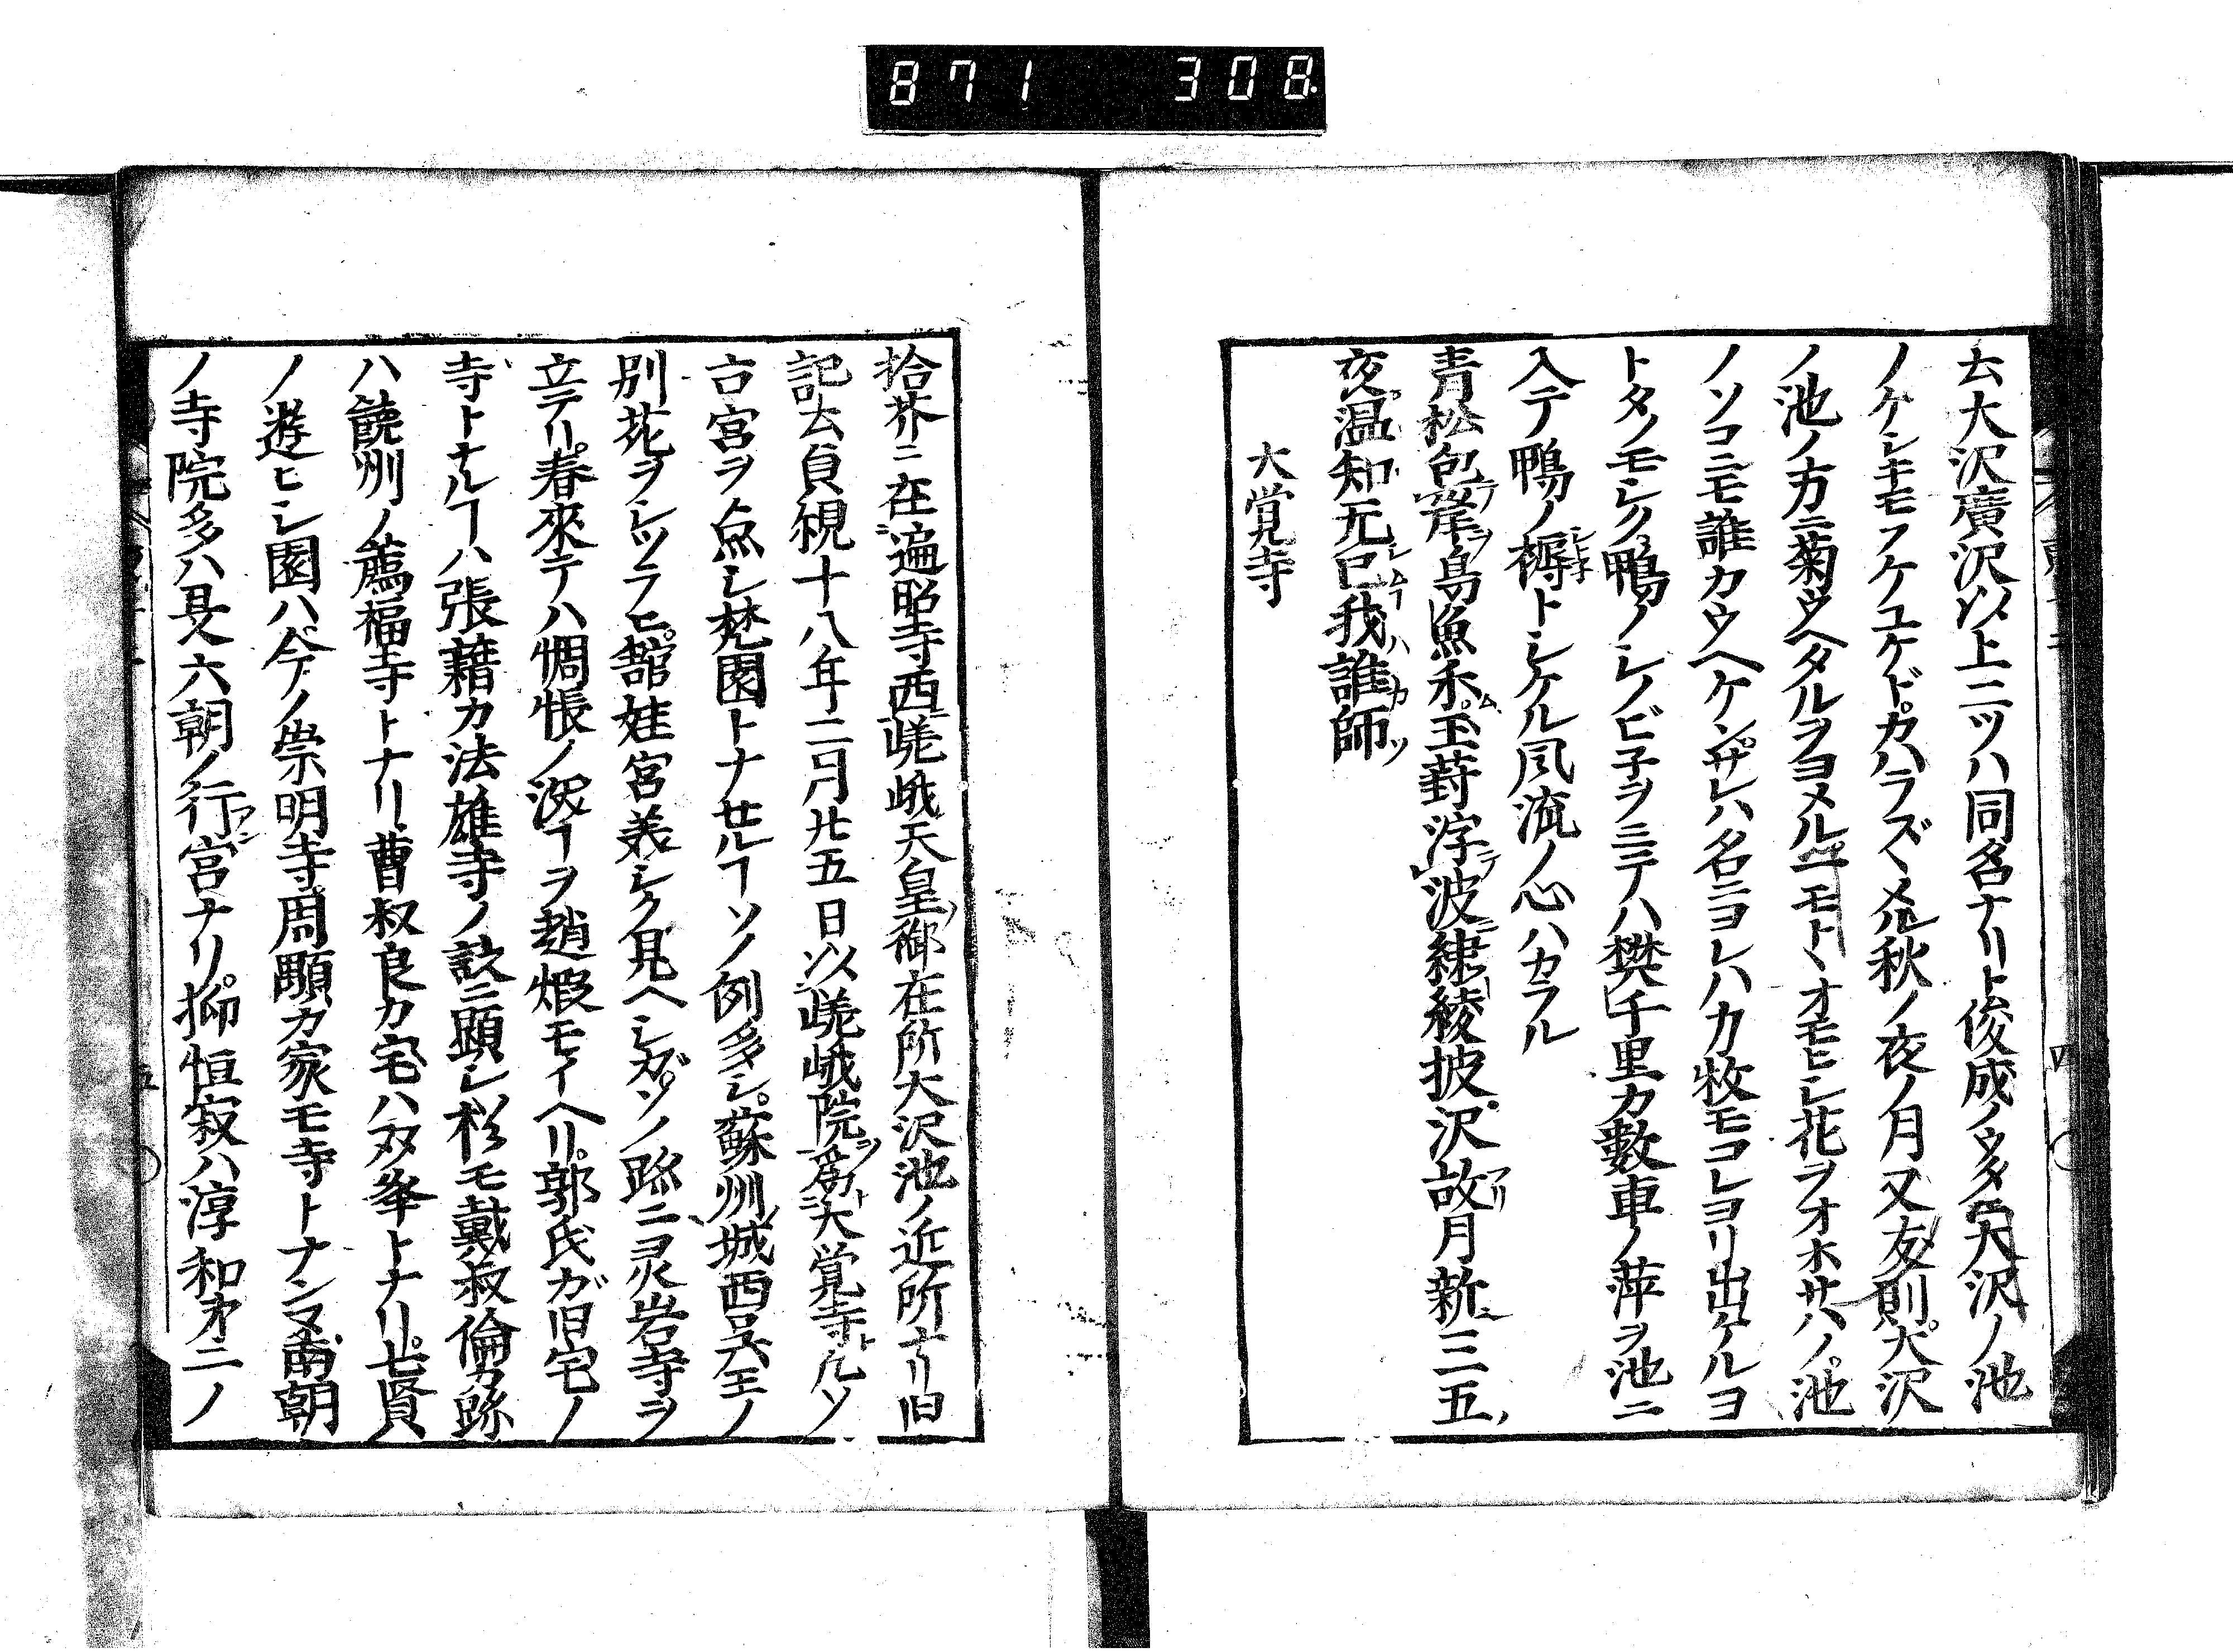 871 308
云大沢廣沢以上二ツハ同名ナリト俊成ノウタニ大沢ノ池
ノケシキモフケユケドカハラズスメル秋ノ夜ノ月又友則大沢
ノ池ノカタニ菊ウヘタルヲヨメル一モトヽオモヒシ花ヲオホサハノ池
ノソコニモ誰カウヘケンサレハ名ニヨレハカ牧モコレヨリ出ケルヨ
トタノモシク鴨ノシノビ子ヲニテハ樊千里カ數車ノ萍ヲ池ニ
入テ鴨ノ褥トシケル風流ノ心ハセフル
青松包岸島魚禾玉葑浮波練綾披沢故月新三五
夜温知元巳我誰師
大覚寺
拾芥ニ在遍昭寺西嵯峨天皇御在所大沢池ノ近所ナリ旧
記云貞観十八年二月廿五日以嵯峨院為大覚寺凡ソ
古宮ヲ點シ梵園トナセルヿソノ例多シ蘇州城西呉王ノ
別花ヲシツラヒ舘娃宮美シク見ヘシガソノ跡ニ灵岩寺ヲ
立テリ春來テハ惆悵ノ深ヿヲ趙嘏モイヘリ郭氏ガ旧宅ノ
寺トナルヿハ張藉カ法雄寺ノ詠ニ顕レ杉モ戴叔倫カ跡
ハ饒州ノ薦福寺トナリ曹叔良カ宅ハ双峯トナリ七賢
ノ遊ヒシ園ハ今ノ崇明寺周顒カ家モ寺トナンマ南朝
ノ寺院多ハ是六朝ノ行宮ナリ抑恒寂ハ淳和才二ノ